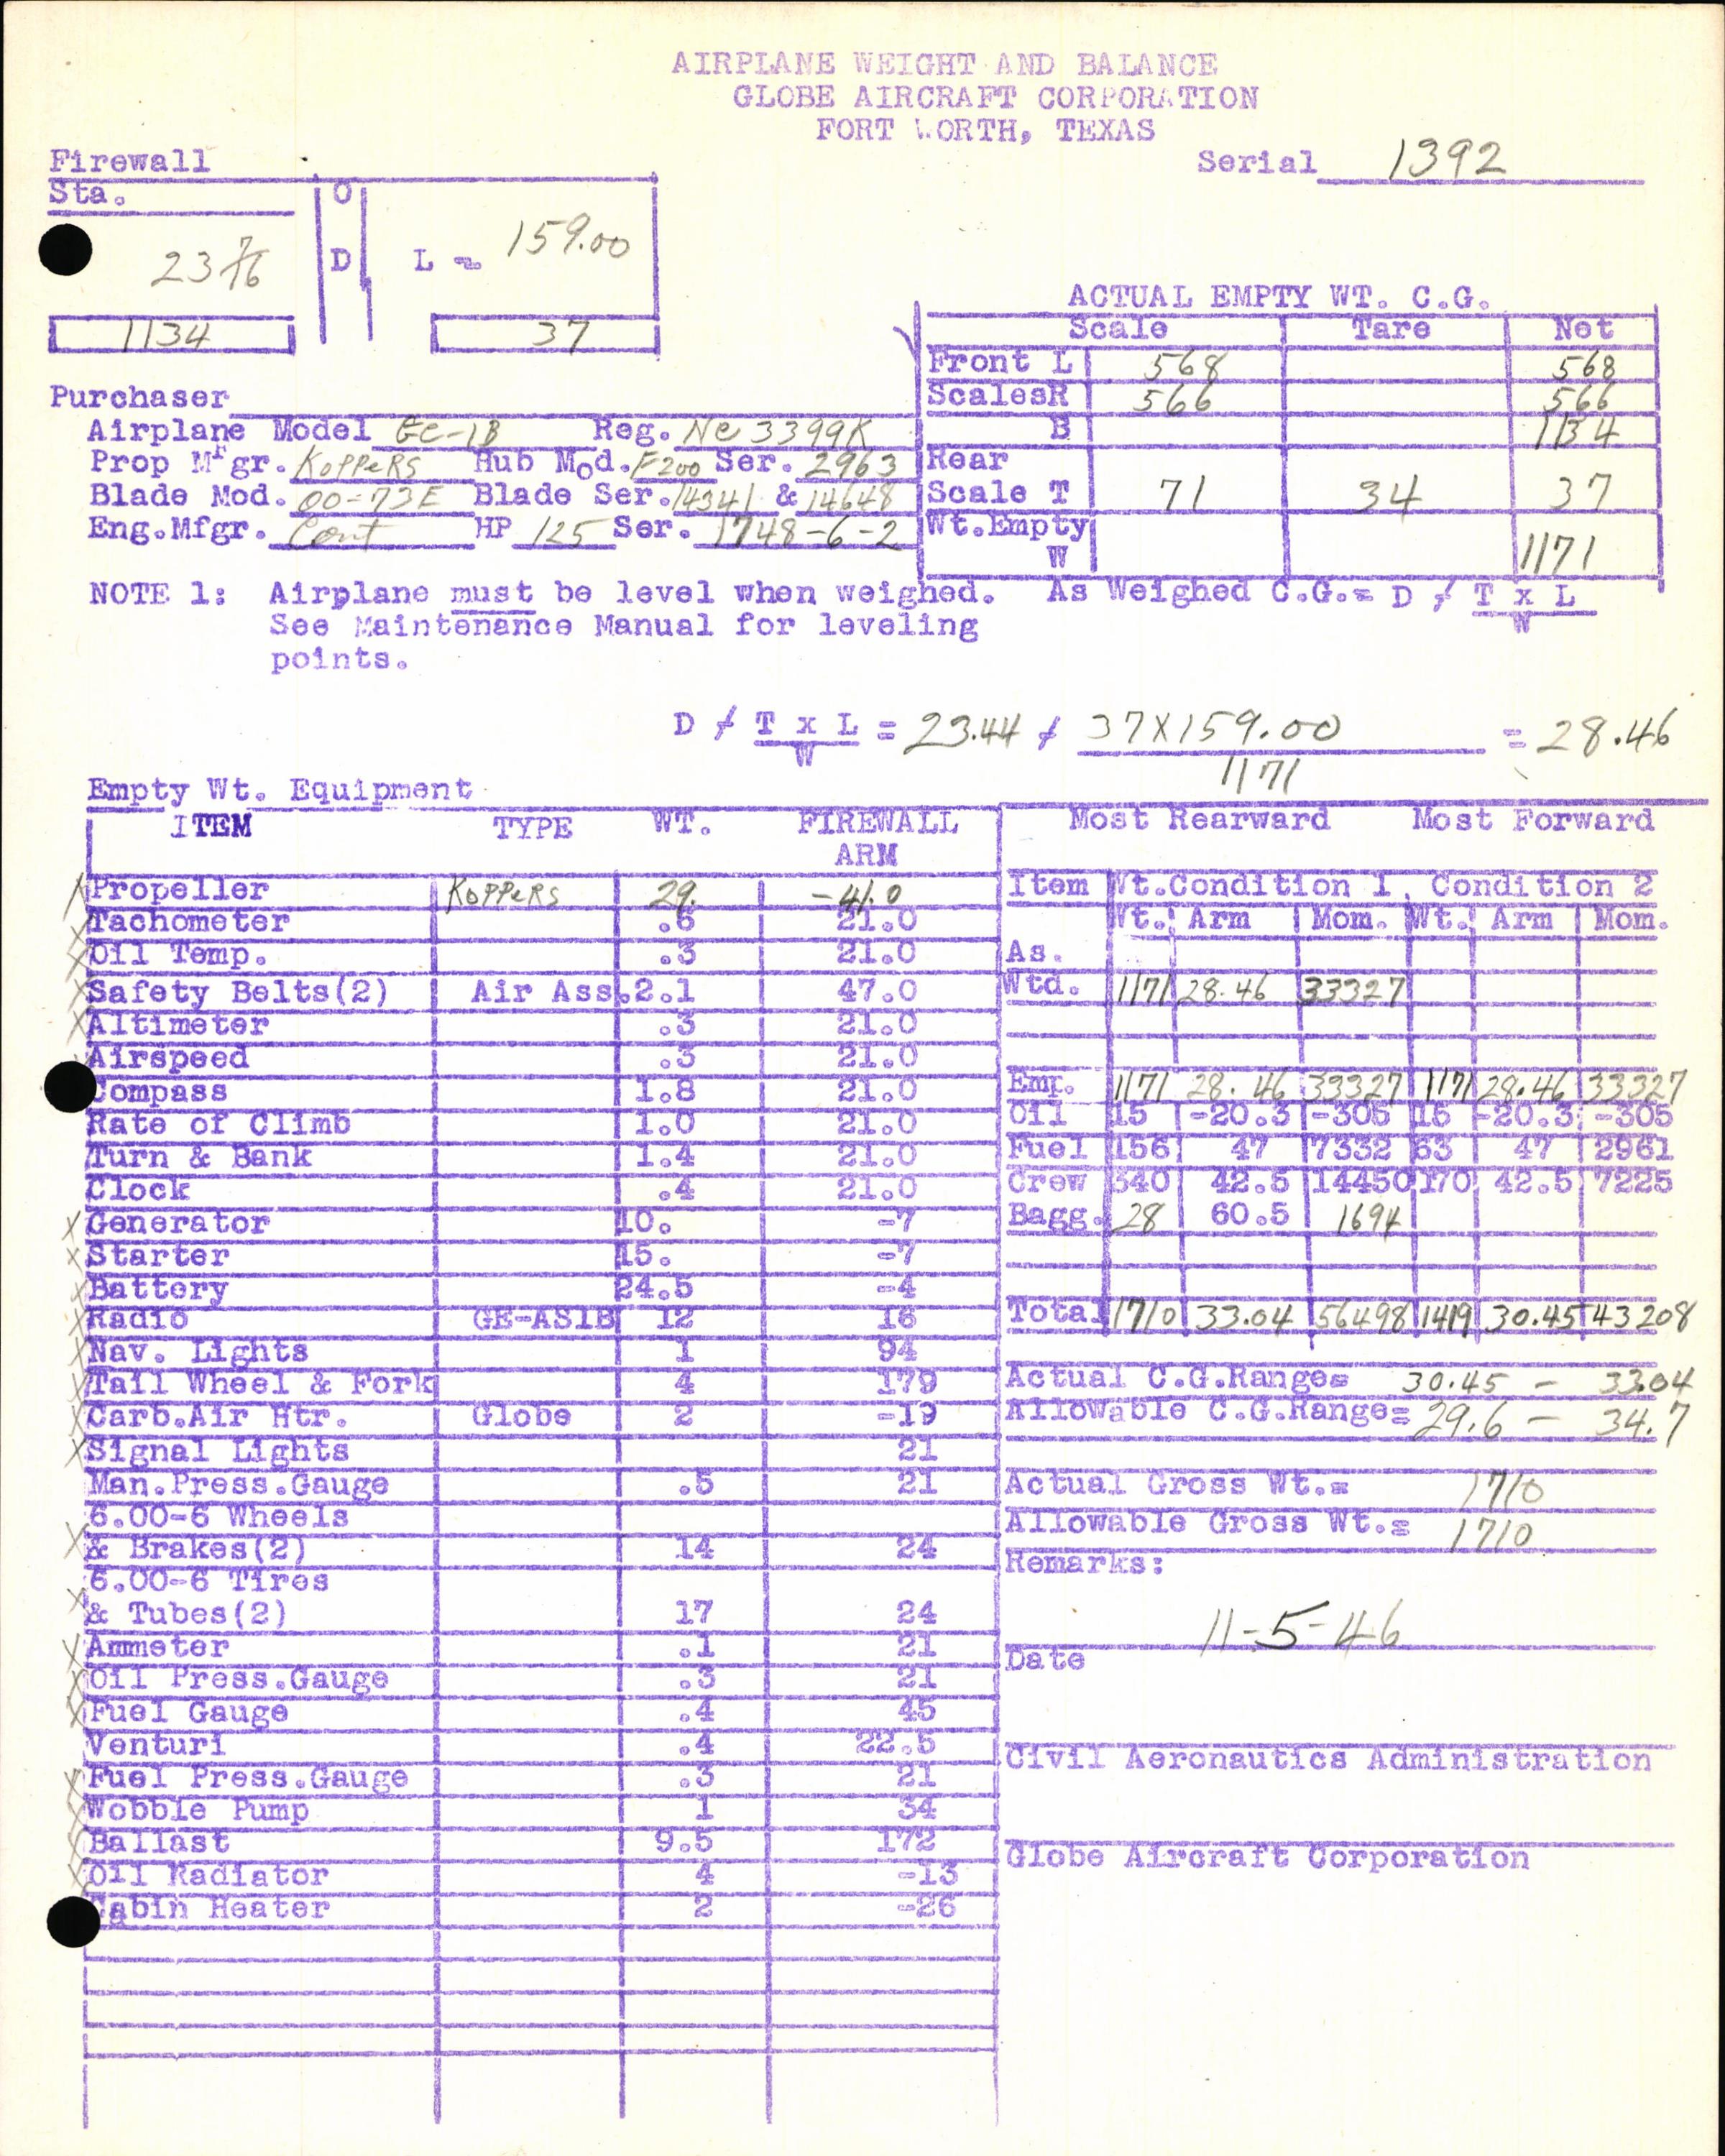 AIRPLANE WEIGHT AND BALANCE
GLOBE AIRCRAFT CORPORATION
FORT WORTH, TEXAS
Serial 1392
Firewall
Sta. O
23 7/16 D L = 159.00
1134 37
ACTUAL EMPTY WT. C.G.
Scale Tare Net
Front L 568 568
Scales R 566 566
B 1134
Rear
Scale T 71 34 37
Wt. Empty
W 1171
Purchaser
Airplane Model GC-1B Reg. Nc 3399K
Prop Mfgr. KOPPERS Hub Mod. F200 Ser. 2963
Blade Mod. 00-73E Blade Ser. 14341 & 14648
Eng.Mfgr. Cont HP 125 Ser. 1748-6-2
NOTE 1: Airplane must be level when weighed. As Weighed C.G.= D / T x L
W
See Maintenance Manual for leveling
points.
D / T x L = 23.44 / 37X159.00 = 28.46
W 1171
Empty Wt. Equipment
ITEM TYPE WT. FIREWALL
ARM
X Propeller KOPPERS 29. -41.0
X Tachometer .6 21.0
X Oil Temp. .3 21.0
X Safety Belts(2) Air Ass. 2.1 47.0
X Altimeter .3 21.0
Airspeed .3 21.0
Compass 1.8 21.0
Rate of Climb 1.0 21.0
Turn & Bank 1.4 21.0
Clock .4 21.0
X Generator 10. -7
X Starter 15. -7
X Battery 24.5 -4
X Radio GE-AS1B 12 16
X Nav. Lights 1 94
X Tail Wheel & Fork 4 179
X Carb.Air Htr. Globe 2 -19
X Signal Lights 21
Man.Press.Gauge .5 21
6.00-6 Wheels
X & Brakes(2) 14 24
6.00-6 Tires
X & Tubes(2) 17 24
X Ammeter .1 21
X Oil Press.Gauge .3 21
X Fuel Gauge .4 45
Venturi .4 22.5
X Fuel Press.Gauge .3 21
X Wobble Pump 1 34
X Ballast 9.5 172
X Oil Radiator 4 -13
Cabin Heater 2 -26
Most Rearward Most Forward
Item Wt.Condition 1 Condition 2
Wt. Arm Mom. Wt. Arm Mom.
As.
Wtd. 1171 28.46 33327
Emp. 1171 28.46 33327 1171 28.46 33327
Oil 15 -20.3 -305 15 -20.3 -305
Fuel 156 47 7332 63 47 2961
Crew 340 42.5 14450 170 42.5 7225
Bagg. 28 60.5 1694
Total 1710 33.04 56498 1419 30.45 43208
Actual C.G.Range= 30.45 - 33.04
Allowable C.G.Range= 29.6 - 34.7
Actual Gross Wt.= 1710
Allowable Gross Wt.= 1710
Remarks:
11-5-46
Date
Civil Aeronautics Administration
Globe Aircraft Corporation